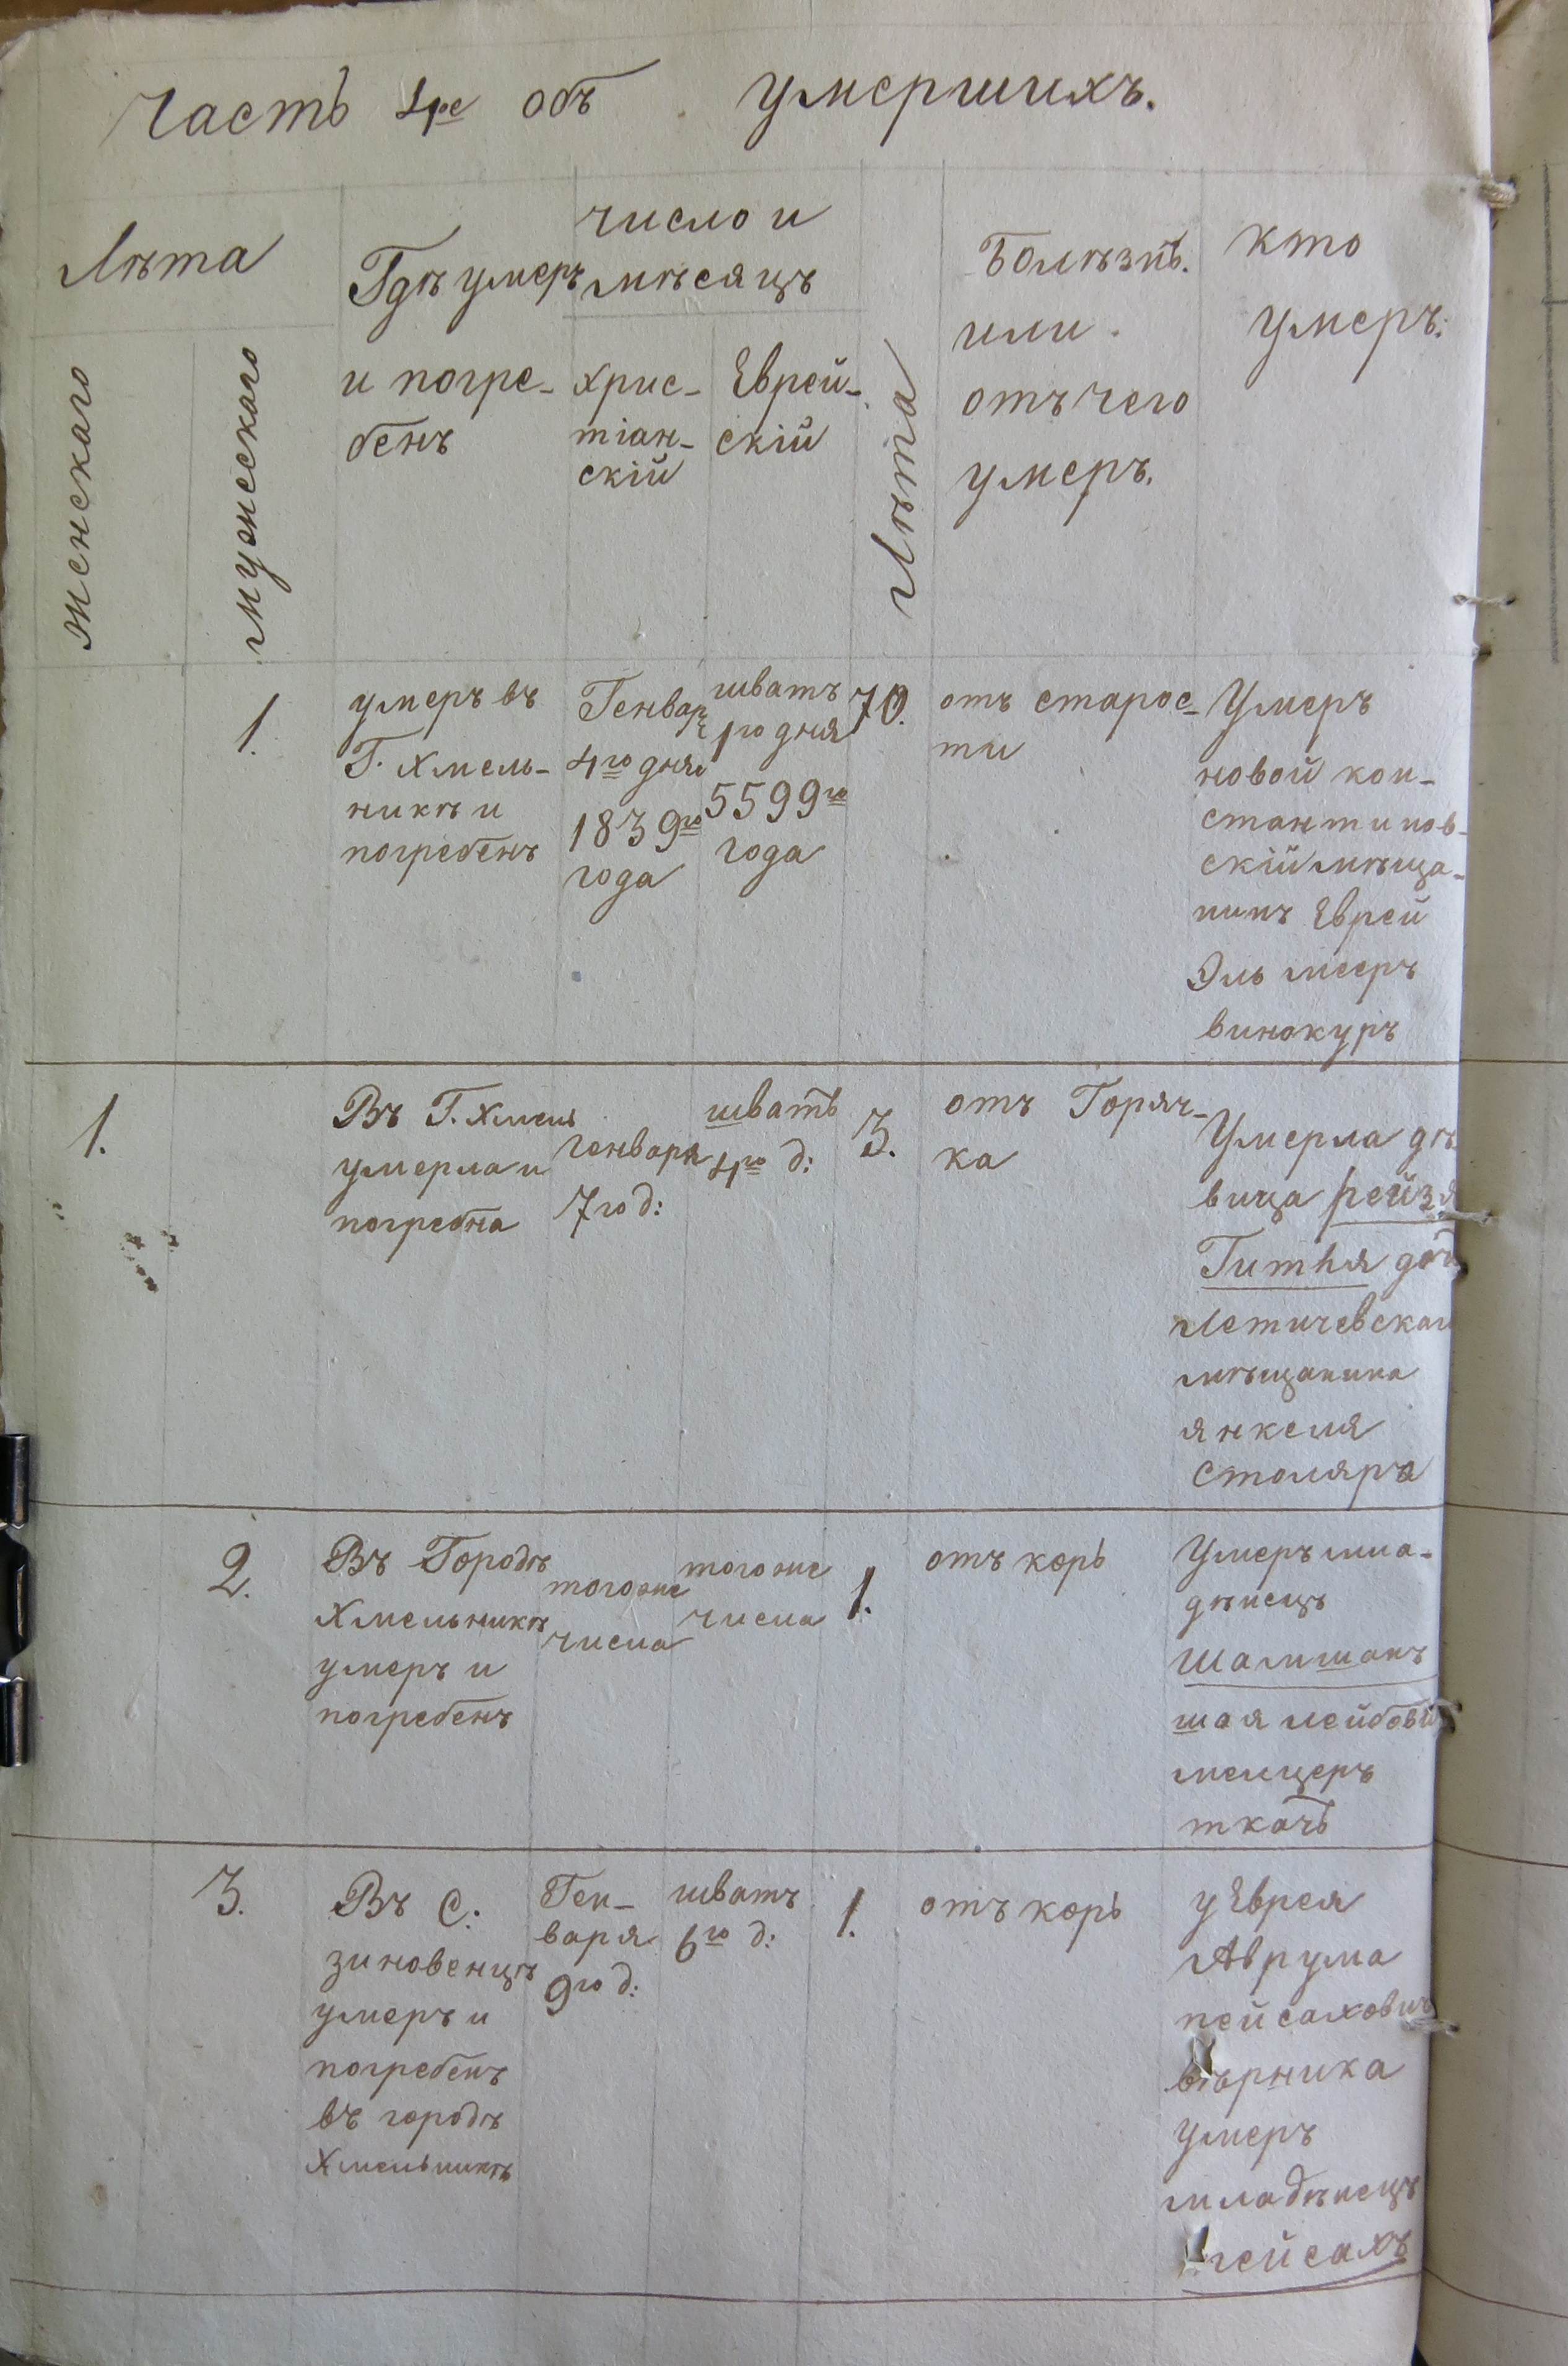 Часть 4ре объ умершихъ.
Лѣта
женскаго
мужескаго
Гдѣ умеръ
и погре-
бенъ
число и
мѣсяцъ
хрис-
тіан-
скій
Еврей-
скій
Лѣта
Болѣзнь.
или
отъ чего
умеръ.
кто
умеръ:
1.
умеръ въ
Г. Хмель-
никѣ и
погребенъ
Генваря
4го дня
1839го
года
шватъ
1го дня
5599го
года
70.
отъ старос-
ти
Умеръ
новой кон-
стантинов-
скій мѣща-
нинъ Еврей
Эль мееръ
винокуръ
1.
Въ Г. Хмель
умерла и
погребна
генваря
7го д:
шватъ
4го д:
3.
отъ Горяч-
ка
Умерла дѣ
вица рейзя
Гитля доч
Летичевскаго
мѣщанина
янкеля
столяра
2.
Въ Городѣ
Хмельникѣ
умеръ и
погребенъ
тогоже
числа
тогоже
числа
1.
отъ корь
Умеръ мла-
дѣнецъ
Шамшанъ
шая лейбови
мелцеръ
ткачь
3.
Въ С:
зиновенцѣ
умеръ и
погребенъ
въ городѣ
Хмельникѣ
Ген-
варя
9го д:
шватъ
6го д:
1.
отъ корь
у Еврея
Аврума
пейсахович
вѣрника
умеръ
младѣнецъ
пейсахъ